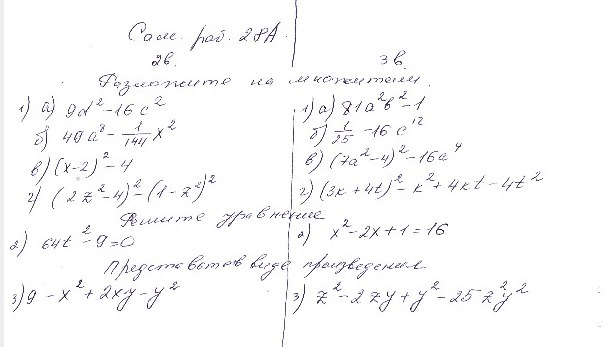 Сам. раб. 28А.
2в.
3в.
Разложите на множители.
1) а) 9d² - 16c²
б) 49a⁸ - 1/144 x²
в) (x-2)² - 4
г) (2z²-4)² - (1-z²)²
1) а) 81a²b² - 1
б) 1/25 - 16c¹²
в) (7a²-4)² - 16a⁴
г) (3k+4t)² - k² + 4kt - 4t²
Решите уравнение
2) 64t² - 9 = 0
2) x² - 2x + 1 = 16
Представьте в виде произведения
3) 9 - x² + 2xy - y²
3) z² - 2zy + y² - 25z²y²